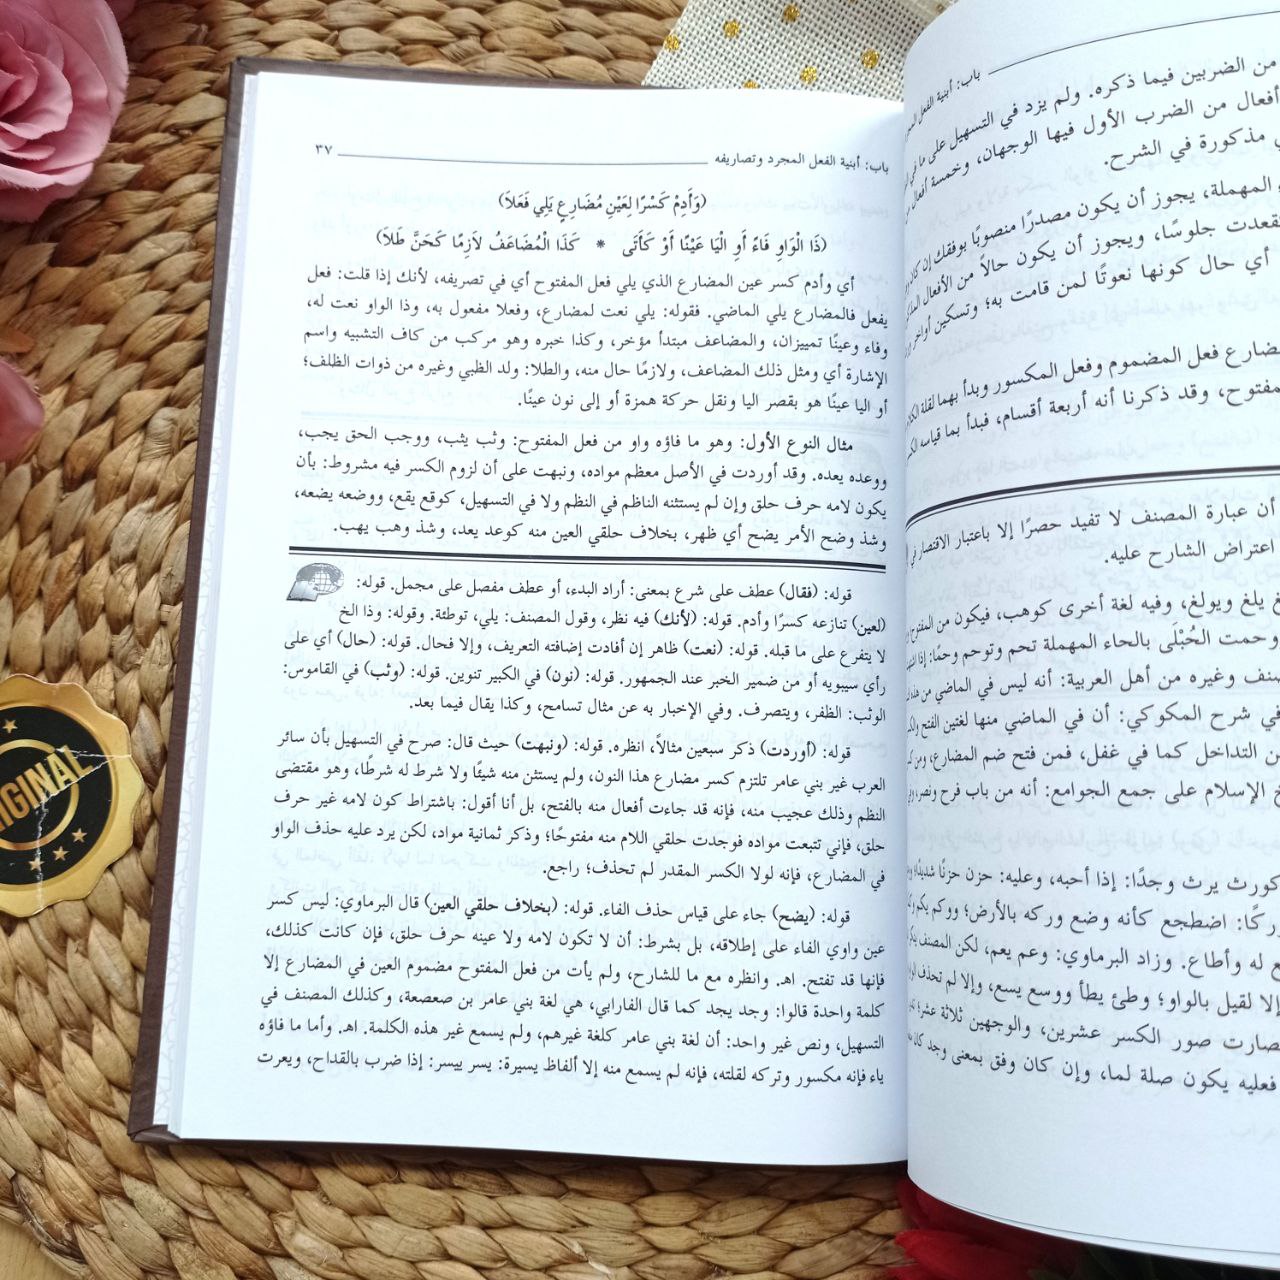 باب: أبنية الفعل المجرد
من الضربين فيما ذكره. ولم يزد في التسهيل على ما في
أفعال من الضرب الأول فيها الوجهان، وخمسة أفعال من
مذكورة في الشرح.
المهملة، يجوز أن يكون مصدرًا منصوبًا بوفقك إن كان
قعدت جلوسًا، ويجوز أن يكون حالاً من الأفعال
أي حال كونها نعوتًا لمن قامت به؛ وتسكين أواخر
ضارع فعل المضموم وفعل المكسور وبدأ بهما لقلة الكلام
مفتوح، وقد ذكرنا أنه أربعة أقسام، فبدأ بما قياسه
أن عبارة المصنف لا تفيد حصرًا إلا باعتبار الاقتصار في
اعتراض الشارح عليه.
يلغ ويولغ، وفيه لغة أخرى كوهب، فيكون من المفتوح
وحمت الحُبْلَى بالحاء المهملة تحم وتوحم وحمًا: إذا
صنف وغيره من أهل العربية: أنه ليس في الماضي من هذه
في شرح المكوكي: أن في الماضي منها لغتين الفتح
من التداخل كما في غفل، فمن فتح ضم المضارع، ومن
خ الإسلام على جمع الجوامع: أنه من باب فرح ونصر،
كورث يرث وجدًا: إذا أحبه، وعليه: حزن حزنًا شديدًا؛
وركًا: اضطجع كأنه وضع وركه بالأرض؛ ووكم يكم
ع له وأطاع. وزاد البرماوي: وعم يعم، لكن المصنف
إلا لقيل بالواو؛ وطئ يطأ ووسع يسع، وإلا لم تحذف
صارت صور الكسر عشرين، والوجهين ثلاثة عشر؛
فعليه يكون صلة لما، وإن كان وفق بمعنى وجد كان
باب: أبنية الفعل المجرد وتصاريفه ٣٧
(وَأَدِمْ كَسْرًا لِعَيْنِ مُضَارِعٍ يَلِي فَعَلاَ)
(ذَا الْوَاوِ فَاءً أَوِ الْيَا عَيْنًا أَوْ كَأَتَى * كَذَا الْمُضَاعَفُ لاَزِمًا كَحَنَّ طَلاَ)
أي وأدم كسر عين المضارع الذي يلي فعل المفتوح أي في تصريفه، لأنك إذا قلت: فعل
يفعل فالمضارع يلي الماضي. فقوله: يلي نعت لمضارع، وفعلا مفعول به، وذا الواو نعت له،
وفاء وعينًا تمييزان، والمضاعف مبتدأ مؤخر، وكذا خبره وهو مركب من كاف التشبيه واسم
الإشارة أي ومثل ذلك المضاعف، ولازمًا حال منه، والطلا: ولد الظبي وغيره من ذوات الظلف؛
أو اليا عينًا هو بقصر اليا ونقل حركة همزة أو إلى نون عينًا.
مثال النوع الأول: وهو ما فاؤه واو من فعل المفتوح: وثب يثب، ووجب الحق يجب،
ووعده يعده. وقد أوردت في الأصل معظم مواده، ونبهت على أن لزوم الكسر فيه مشروط: بأن
يكون لامه حرف حلق وإن لم يستثنه الناظم في النظم ولا في التسهيل، كوقع يقع، ووضعه يضعه،
وشذ وضح الأمر يضح أي ظهر، بخلاف حلقي العين منه كوعد يعد، وشذ وهب يهب.
قوله: (فقال) عطف على شرع بمعنى: أراد البدء، أو عطف مفصل على مجمل. قوله:
(لعين) تنازعه كسرًا وأدم. قوله: (لأنك) فيه نظر، وقول المصنف: يلي، توطئة. وقوله: وذا الخ
لا يتفرع على ما قبله. قوله: (نعت) ظاهر إن أفادت إضافته التعريف، وإلا فحال. قوله: (حال) أي على
رأي سيبويه أو من ضمير الخبر عند الجمهور. قوله: (نون) في الكبير تنوين. قوله: (وثب) في القاموس:
الوثب: الظفر، ويتصرف. وفي الإخبار به عن مثال تسامح، وكذا يقال فيما بعد.
قوله: (أوردت) ذكر سبعين مثالاً، انظره. قوله: (ونبهت) حيث قال: صرح في التسهيل بأن سائر
العرب غير بني عامر تلتزم كسر مضارع هذا النون، ولم يستثن منه شيئًا ولا شرط له شرطًا، وهو مقتضى
النظم وذلك عجيب منه، فإنه قد جاءت أفعال منه بالفتح، بل أنا أقول: باشتراط كون لامه غير حرف
حلق، فإني تتبعت مواده فوجدت حلقي اللام منه مفتوحًا؛ وذكر ثمانية مواد، لكن يرد عليه حذف الواو
في المضارع، فإنه لولا الكسر المقدر لم تحذف؛ راجع.
قوله: (يضح) جاء على قياس حذف الفاء. قوله: (بخلاف حلقي العين) قال البرماوي: ليس كسر
عين واوي الفاء على إطلاقه، بل بشرط: أن لا تكون لامه ولا عينه حرف حلق، فإن كانت كذلك،
فإنها قد تفتح. اهـ. وانظره مع ما للشارح، ولم يأت من فعل المفتوح مضموم العين في المضارع إلا
كلمة واحدة قالوا: وجد يجد كما قال الفارابي، هي لغة بني عامر بن صعصعة، وكذلك المصنف في
التسهيل، ونص غير واحد: أن لغة بني عامر كلغة غيرهم، ولم يسمع غير هذه الكلمة. اهـ. وأما ما فاؤه
ياء فإنه مكسور وتركه لقلته، فإنه لم يسمع منه إلا ألفاظ يسيرة: يسر ييسر: إذا ضرب بالقداح، ويعرت
ORIGINAL